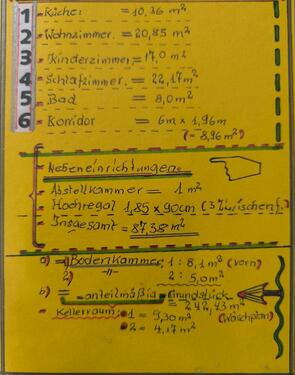 1 - Küche: = 10,36 m²
2 - Wohnzimmer = 20,85 m²
3 - Kinderzimmer = 17,0 m²
4 - Schlafzimmer = 22,17 m²
5 - Bad = 8,0 m²
6 - Korridor = 6m x 1,96m
(= 8,96 m²)
Nebeneinrichtungen
- Abstellkammer = 1 m²
- Hochregal 1,85 x 90cm (3 Zwischenf.
- Insgesamt = 87,38 m²
a) = Bodenkammer 1: 8,1 m² (vorn)
2) -"- 2: 5,0 m²
b) = anteilmäßig Grundstück
= 242,43 m²
- Kellerraum: 1 = 9,30 m² (Waschplan)
2 = 4,17 m²